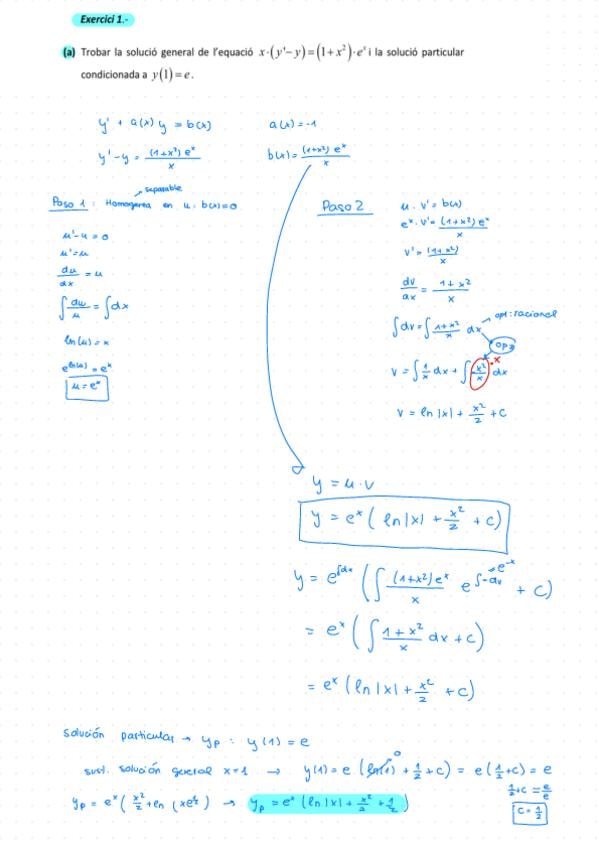 Exercici 1.-
(a) Trobar la solució general de l'equació x·(y'-y)=(1+x²)·eˣ i la solució particular
condicionada a y(1)=e.
y' + a(x) y = b(x)
a(x)=-1
y' - y = (1+x²) eˣ / x
b(x) = (1+x²) eˣ / x
separable
Paso 1: Homogenea en u: b(x)=0
u' - u = 0
u' = u
du/dx = u
∫ du/u = ∫ dx
ln(u) = x
e^ln(u) = eˣ
u = eˣ
Paso 2
u · v' = b(x)
eˣ · v' = (1+x²) eˣ / x
v' = (1+x²) / x
dv/dx = 1+x² / x
∫ dv = ∫ 1+x² / x dx
op1: racional
op2
v = ∫ 1/x dx + ∫ x²/x dx
x
v = ln|x| + x²/2 + C
y = u·v
y = eˣ ( ln|x| + x²/2 + C)
y = e^∫dx ( ∫ (1+x²) eˣ / x e^∫-dx + C)
e⁻ˣ
= eˣ ( ∫ 1+x² / x dx + C)
= eˣ (ln|x| + x²/2 + C)
Solución particular → yp : y(1) = e
sust. solución general x=1 → y(1) = e (ln(1) + 1/2 + C) = e (1/2 + C) = e
0
1/2 + C = e/e
C = 1/2
yp = eˣ ( x²/2 + ln (xe^½) → yp = eˣ (ln|x| + x²/2 + 1/2)